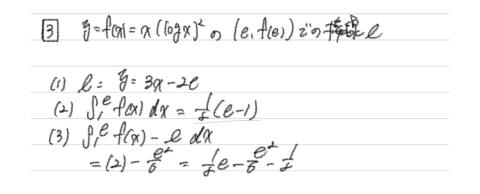 ③ y=f(x)=x(logx)² の (e, f(e)) での接線 l
(1) l = y = 3x-2e
(2) ∫₁ᵉ f(x) dx = 1/2(e-1)
(3) ∫₁ᵉ f(x) - l dx
= (2) - e²/6 = 1/2e - e²/6 - 1/2